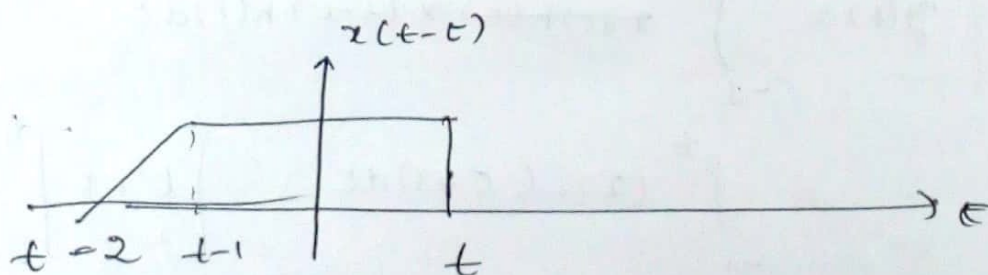 x(t-τ)
t-2 t-1 t τ